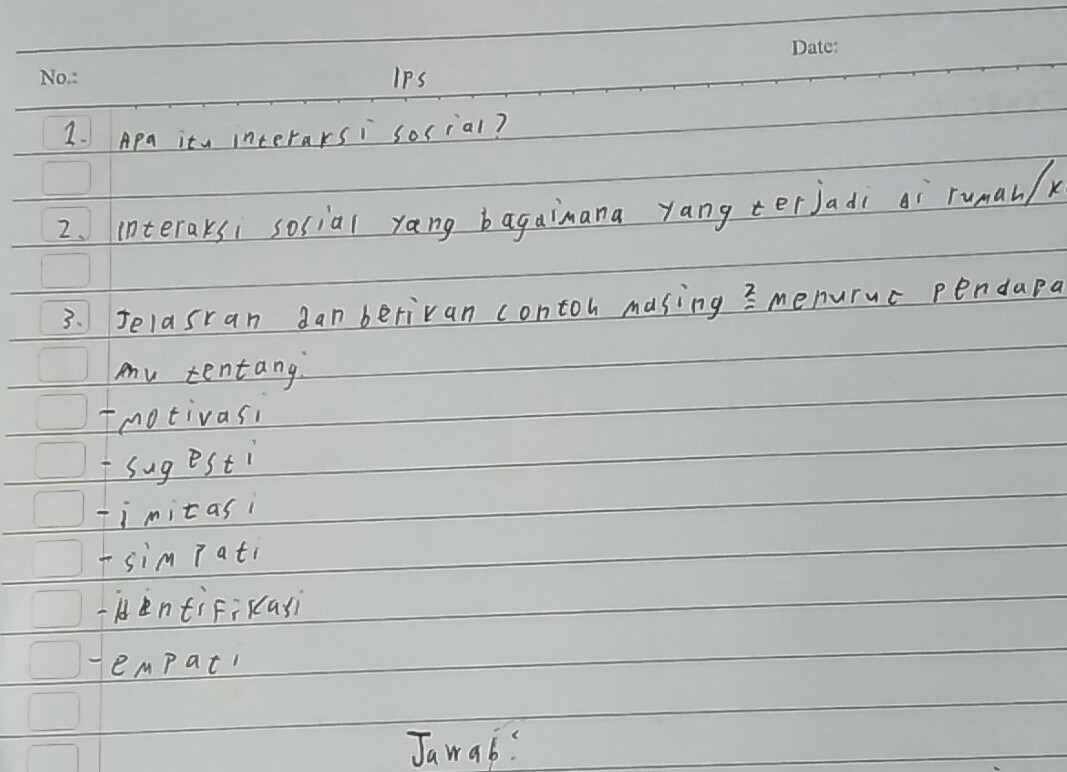 No.:
IPS
Date:
1. Apa itu interaksi sosial?
2. interaksi sosial yang bagaimana yang terjadi di rumah/k
3. Jelaskan dan berikan contoh masing² menurut pendapa
mu tentang:
- motivasi
- sugesti
- imitasi
- simpati
- identifikasi
- empati
Jawab: